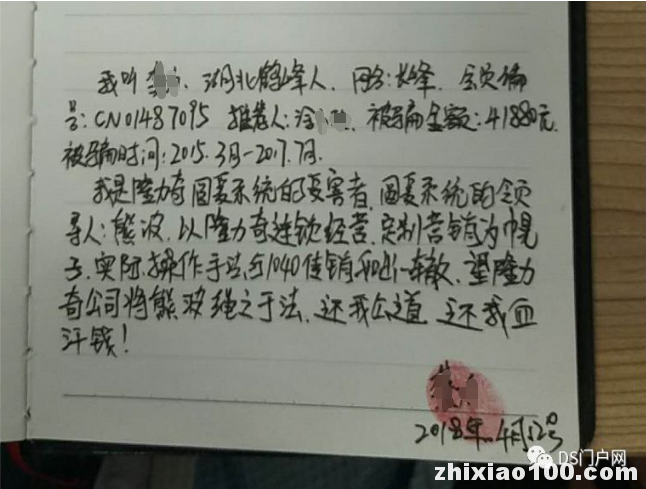 我叫李 、湖北鹤峰人，网名：长峰，会员编
号：CN01487095 推荐人：涂 被骗金额：41880元，
被骗时间：2015.3月-2017.7月.
我是隆力奇国夏系统的受害者，国夏系统的领
导人：熊波，以隆力奇连锁经营，定制营销为幌
子，实际操作手法与1040传销如出一辙，望隆力
奇公司将熊波绳之于法，还我公道，还我血
汗钱！
2018年4月12号
DS门户网
zhixiao100.com